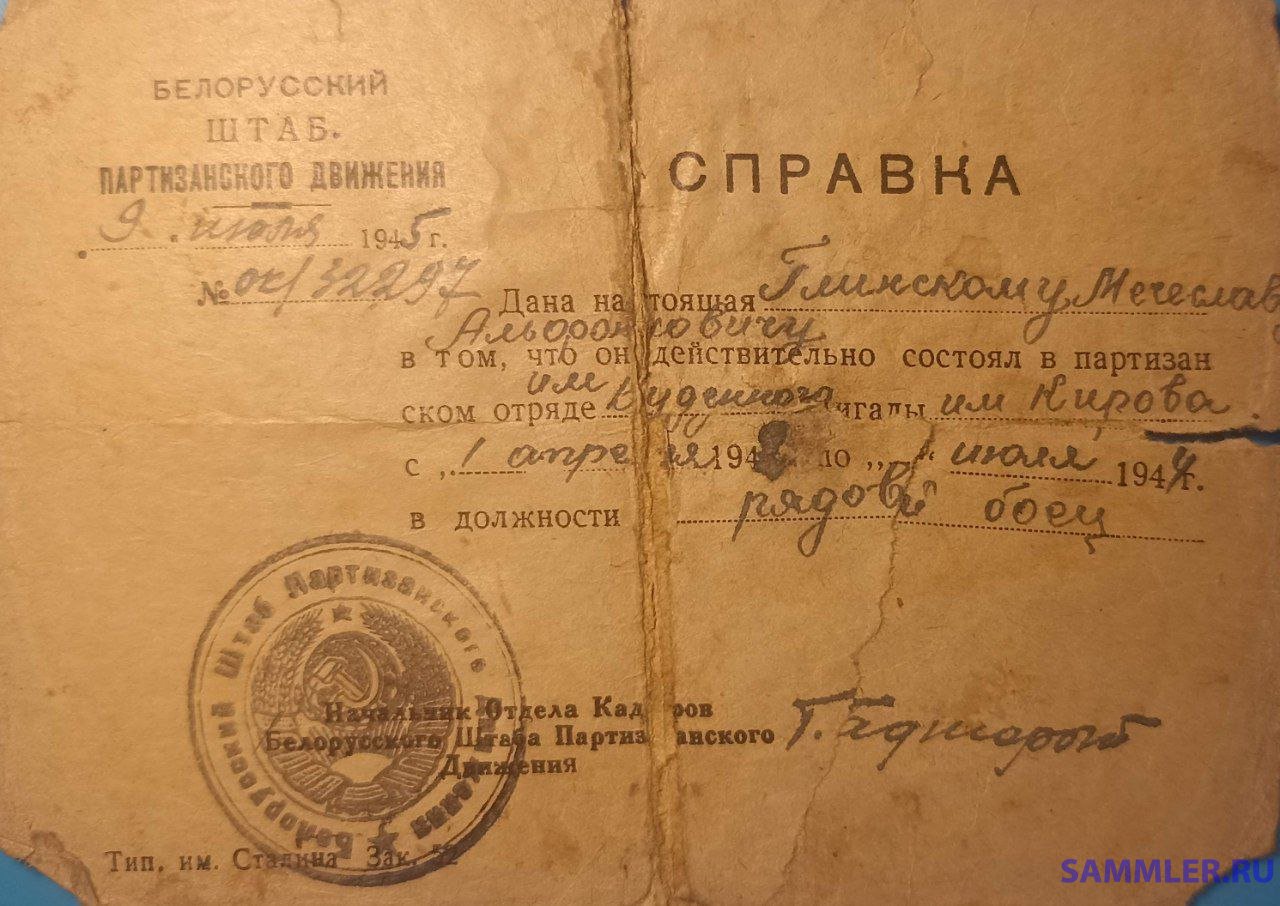 БЕЛОРУССКИЙ
ШТАБ.
ПАРТИЗАНСКОГО ДВИЖЕНИЯ
9 июля 1945 г.
№ ок/32297
СПРАВКА
Дана настоящая Глинскому Мечеслав
Альфонсовичу
в том, что он действительно состоял в партизан
ском отряде им Буденного бригады им Кирова
с „1 апреля 194 по „1" июля 1944 г.
в должности рядовой боец
Белорусский Штаб Партизанского Движения
Начальник Отдела Кадров
Белорусского Штаба Партизанского
Движения
Тип. им. Сталина Зак. 52
SAMMLER.RU